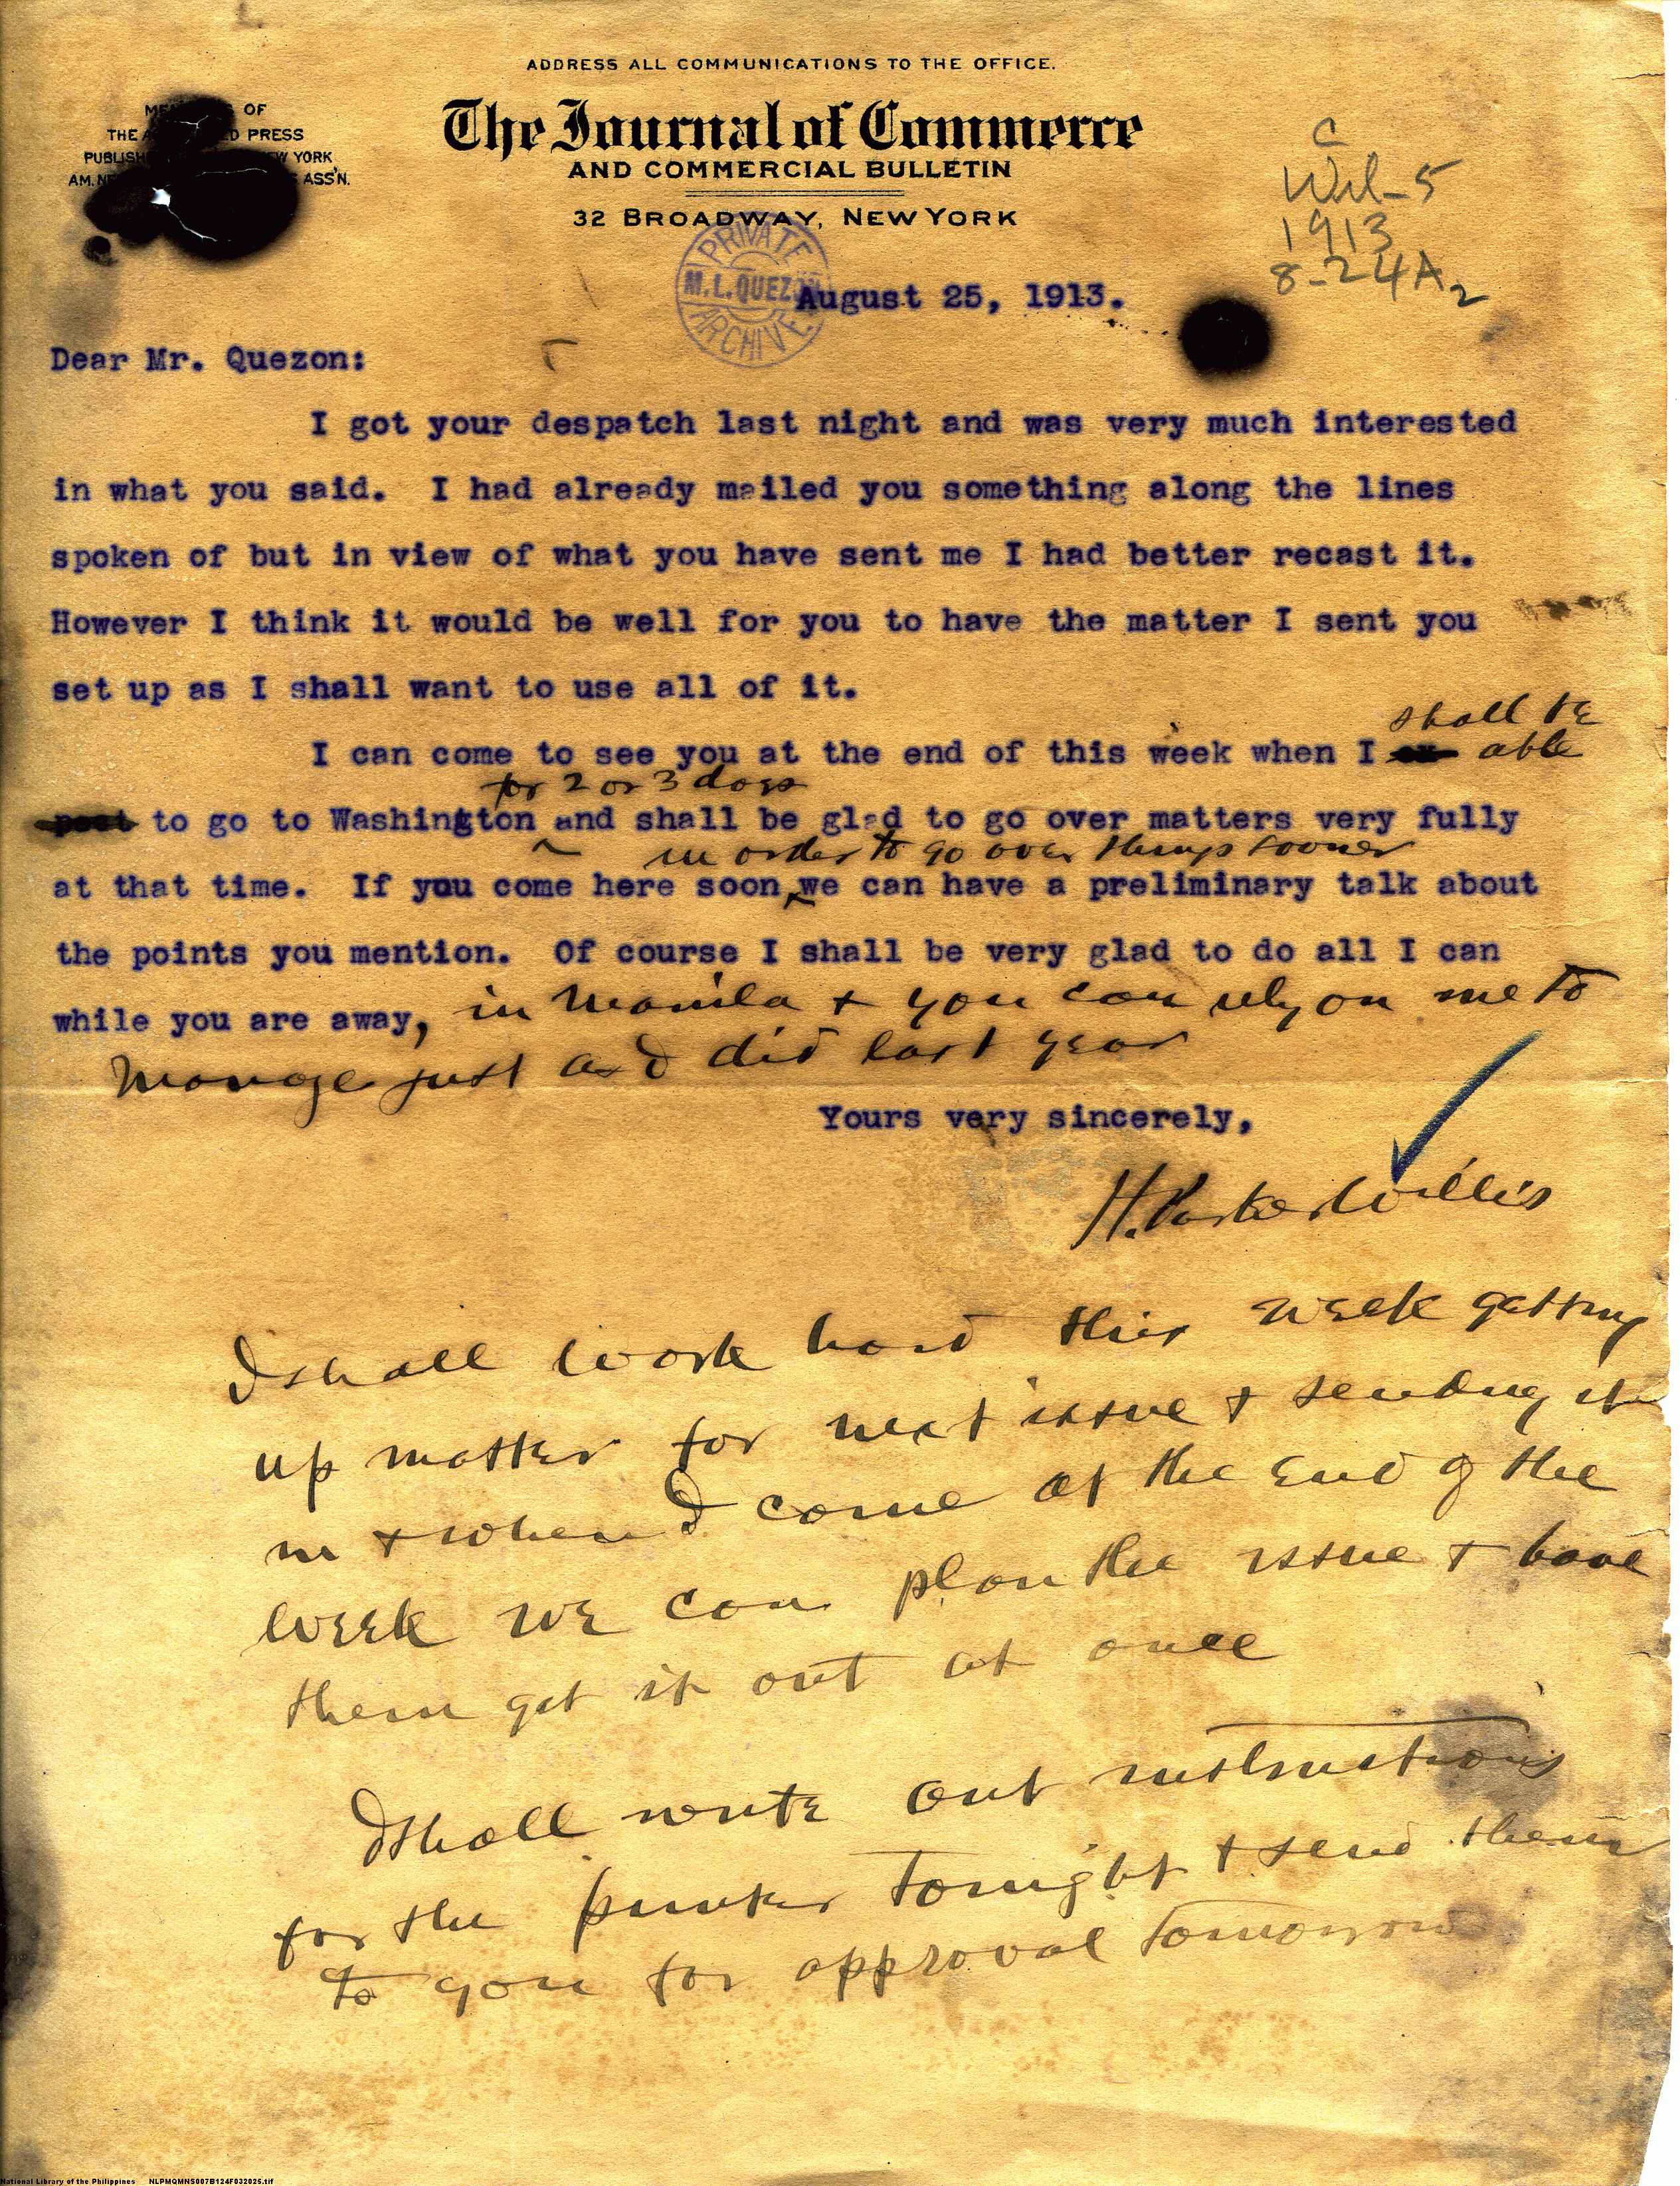 ADDRESS ALL COMMUNICATIONS TO THE OFFICE.
OF
THE PRESS
YORK
ASS'N.
The Journal of Commerce
AND COMMERCIAL BULLETIN
32 BROADWAY, NEW YORK
C
Wil-5
1913
8-24A2
PRIVATE
M. L. QUEZON
ARCHIVE
August 25, 1913.
Dear Mr. Quezon:
I got your despatch last night and was very much interested
in what you said. I had already mailed you something along the lines
spoken of but in view of what you have sent me I had better recast it.
However I think it would be well for you to have the matter I sent you
set up as I shall want to use all of it.
shall be
I can come to see you at the end of this week when I able
for 2 or 3 days
to go to Washington and shall be glad to go over matters very fully
in order to go over things sooner
at that time. If you come here soon, we can have a preliminary talk about
the points you mention. Of course I shall be very glad to do all I can
while you are away, in Manila + you can rely on me to
manage just as I did last year
Yours very sincerely,
H. Parker Willis
I shall work hard this week getting
up matter for next issue + sending it
in + when I come at the end of the
week we can plan the issue + have
them get it out at once
I shall write out instructions
for the printer tonight + send them
to you for approval tomorrow
National Library of the Philippines NLPMQMNS007B124F032025.tif